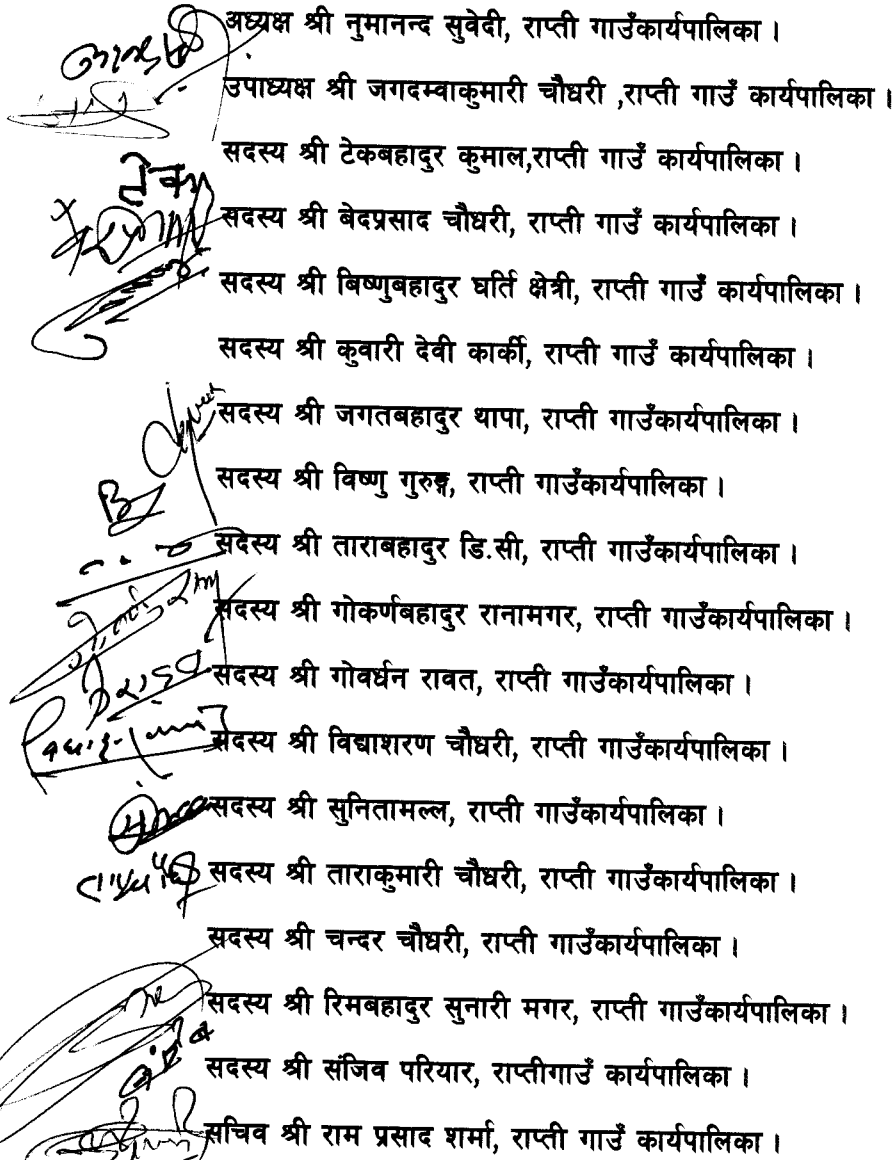 अध्यक्ष श्री नुमानन्द सुवेदी, राप्ती गाउँकार्यपालिका ।
उपाध्यक्ष श्री जगदम्वाकुमारी चौधरी ,राप्ती गाउँ कार्यपालिका ।
सदस्य श्री टेकबहादुर कुमाल,राप्ती गाउँ कार्यपालिका ।
टेक
सदस्य श्री बेदप्रसाद चौधरी, राप्ती गाउँ कार्यपालिका ।
सदस्य श्री बिष्णुबहादुर घर्ति क्षेत्री, राप्ती गाउँ कार्यपालिका ।
सदस्य श्री कुवारी देवी कार्की, राप्ती गाउँ कार्यपालिका ।
सदस्य श्री जगतबहादुर थापा, राप्ती गाउँकार्यपालिका ।
सदस्य श्री विष्णु गुरुङ्ग, राप्ती गाउँकार्यपालिका ।
सदस्य श्री ताराबहादुर डि.सी, राप्ती गाउँकार्यपालिका ।
सदस्य श्री गोकर्णबहादुर रानामगर, राप्ती गाउँकार्यपालिका ।
सदस्य श्री गोवर्धन रावत, राप्ती गाउँकार्यपालिका ।
सदस्य श्री विद्याशरण चौधरी, राप्ती गाउँकार्यपालिका ।
सदस्य श्री सुनितामल्ल, राप्ती गाउँकार्यपालिका ।
सदस्य श्री ताराकुमारी चौधरी, राप्ती गाउँकार्यपालिका ।
सदस्य श्री चन्दर चौधरी, राप्ती गाउँकार्यपालिका ।
सदस्य श्री रिमबहादुर सुनारी मगर, राप्ती गाउँकार्यपालिका ।
सदस्य श्री संजिव परियार, राप्तीगाउँ कार्यपालिका ।
सचिव श्री राम प्रसाद शर्मा, राप्ती गाउँ कार्यपालिका ।